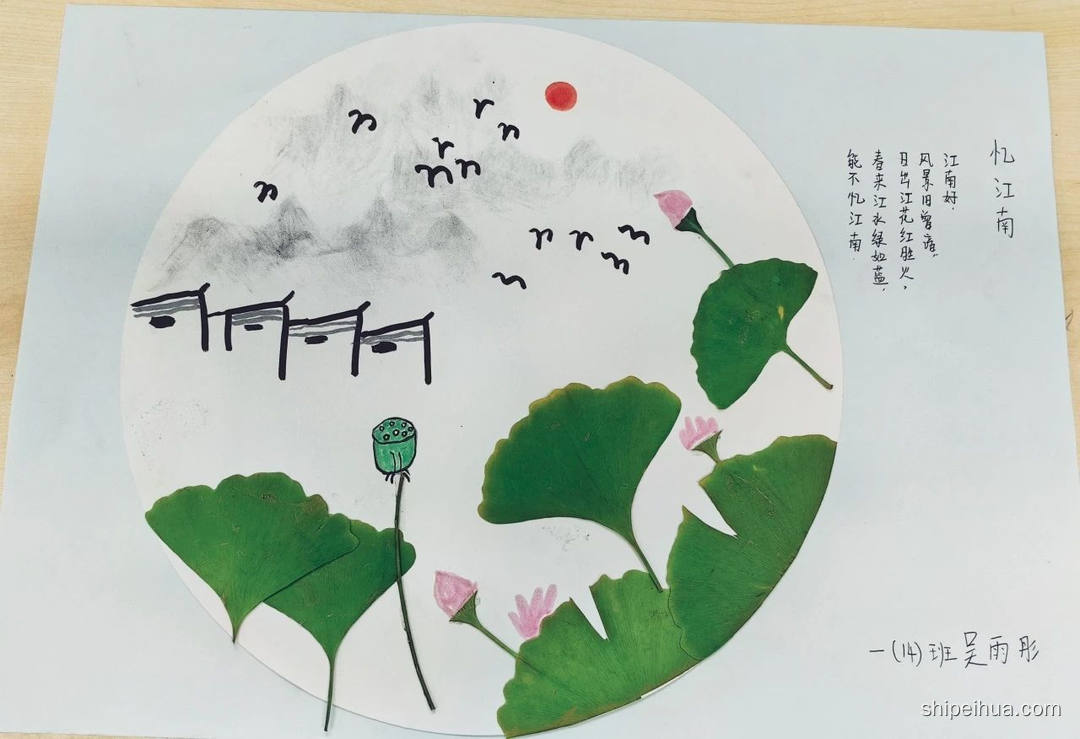 忆江南
江南好，
风景旧曾谙，
日出江花红胜火，
春来江水绿如蓝，
能不忆江南．
一(14)班吴雨彤
shipeihua.com